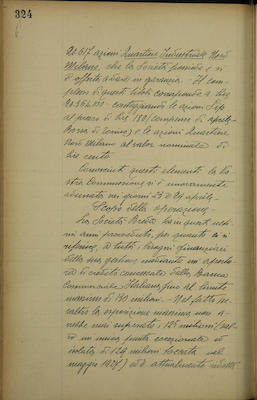 324
20.617 azioni Quartiere Industriale Nord
Milano, che la Società possiede e si
è offerta a dare in garanzia. - Il com-
plesso di questi titoli corrisponde a lire
conteggiando le azioni Sip
al prezzo di lire 130 (compenso di aprile
Borsa di Torino) e le azioni Quartiere
Nord Milano al valore nominale di
lire cento.
Conosciuti questi elementi la Vo-
stra Commissione si è nuovamente
adunata nei giorni 23 e 24 aprile.
Scopo della operazione -
La Società Breda ha in questi ulti-
mi anni provveduto, per quanto si
riferisce, a tutti i bisogni finanziari
della sua gestione mediante un apertu-
ra di credito concessale dalla Banca
Commerciale Italiana, fino al limite
massimo di 140 milioni. - Nel fatto in-
vece la esposizione massima non a-
vrebbe mai superato i 125 milioni (sal-
vo un unica punta eccezionale ed
isolata di 129 milioni toccata nel
maggio 1927) ed è attualmente ridotta